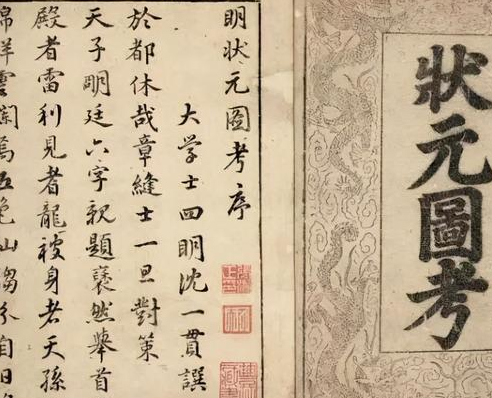 狀元圖考
明狀元圖考序
大学士四明沈一貫譔
於都休哉章縫士一旦對策
天子明廷六字親題裦然舉首
殿者雷利見者龍被身者天孫
錦祥雲闕為五色山芻分自日